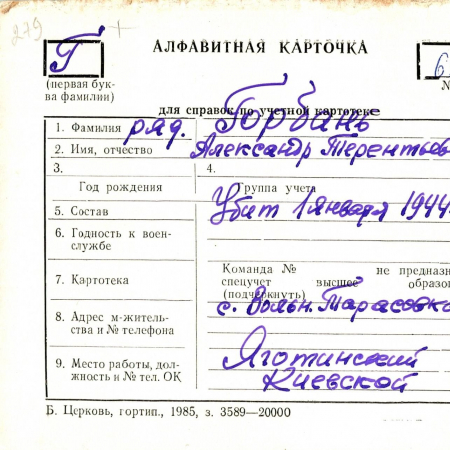 279 +
Г АЛФАВИТНАЯ КАРТОЧКА 6
(первая бук- №
ва фамилии)
для справок по учетной картотеке
1. Фамилия ряд. Горбань
2. Имя, отчество Александр Терентьев
3. 4.
Год рождения Группа учета
5. Состав Убит 1 января 1944
6. Годность к воен-
службе
Команда № не предназн
7. Картотека спецучет высшее образо
(подчеркнуть)
с. Вольн. Тарасовка
8. Адрес м-житель-
ства и № телефона
Яготинский
9. Место работы, дол-
жность и № тел. ОК Киевской
Б. Церковь, гортип., 1985, з. 3589—20000